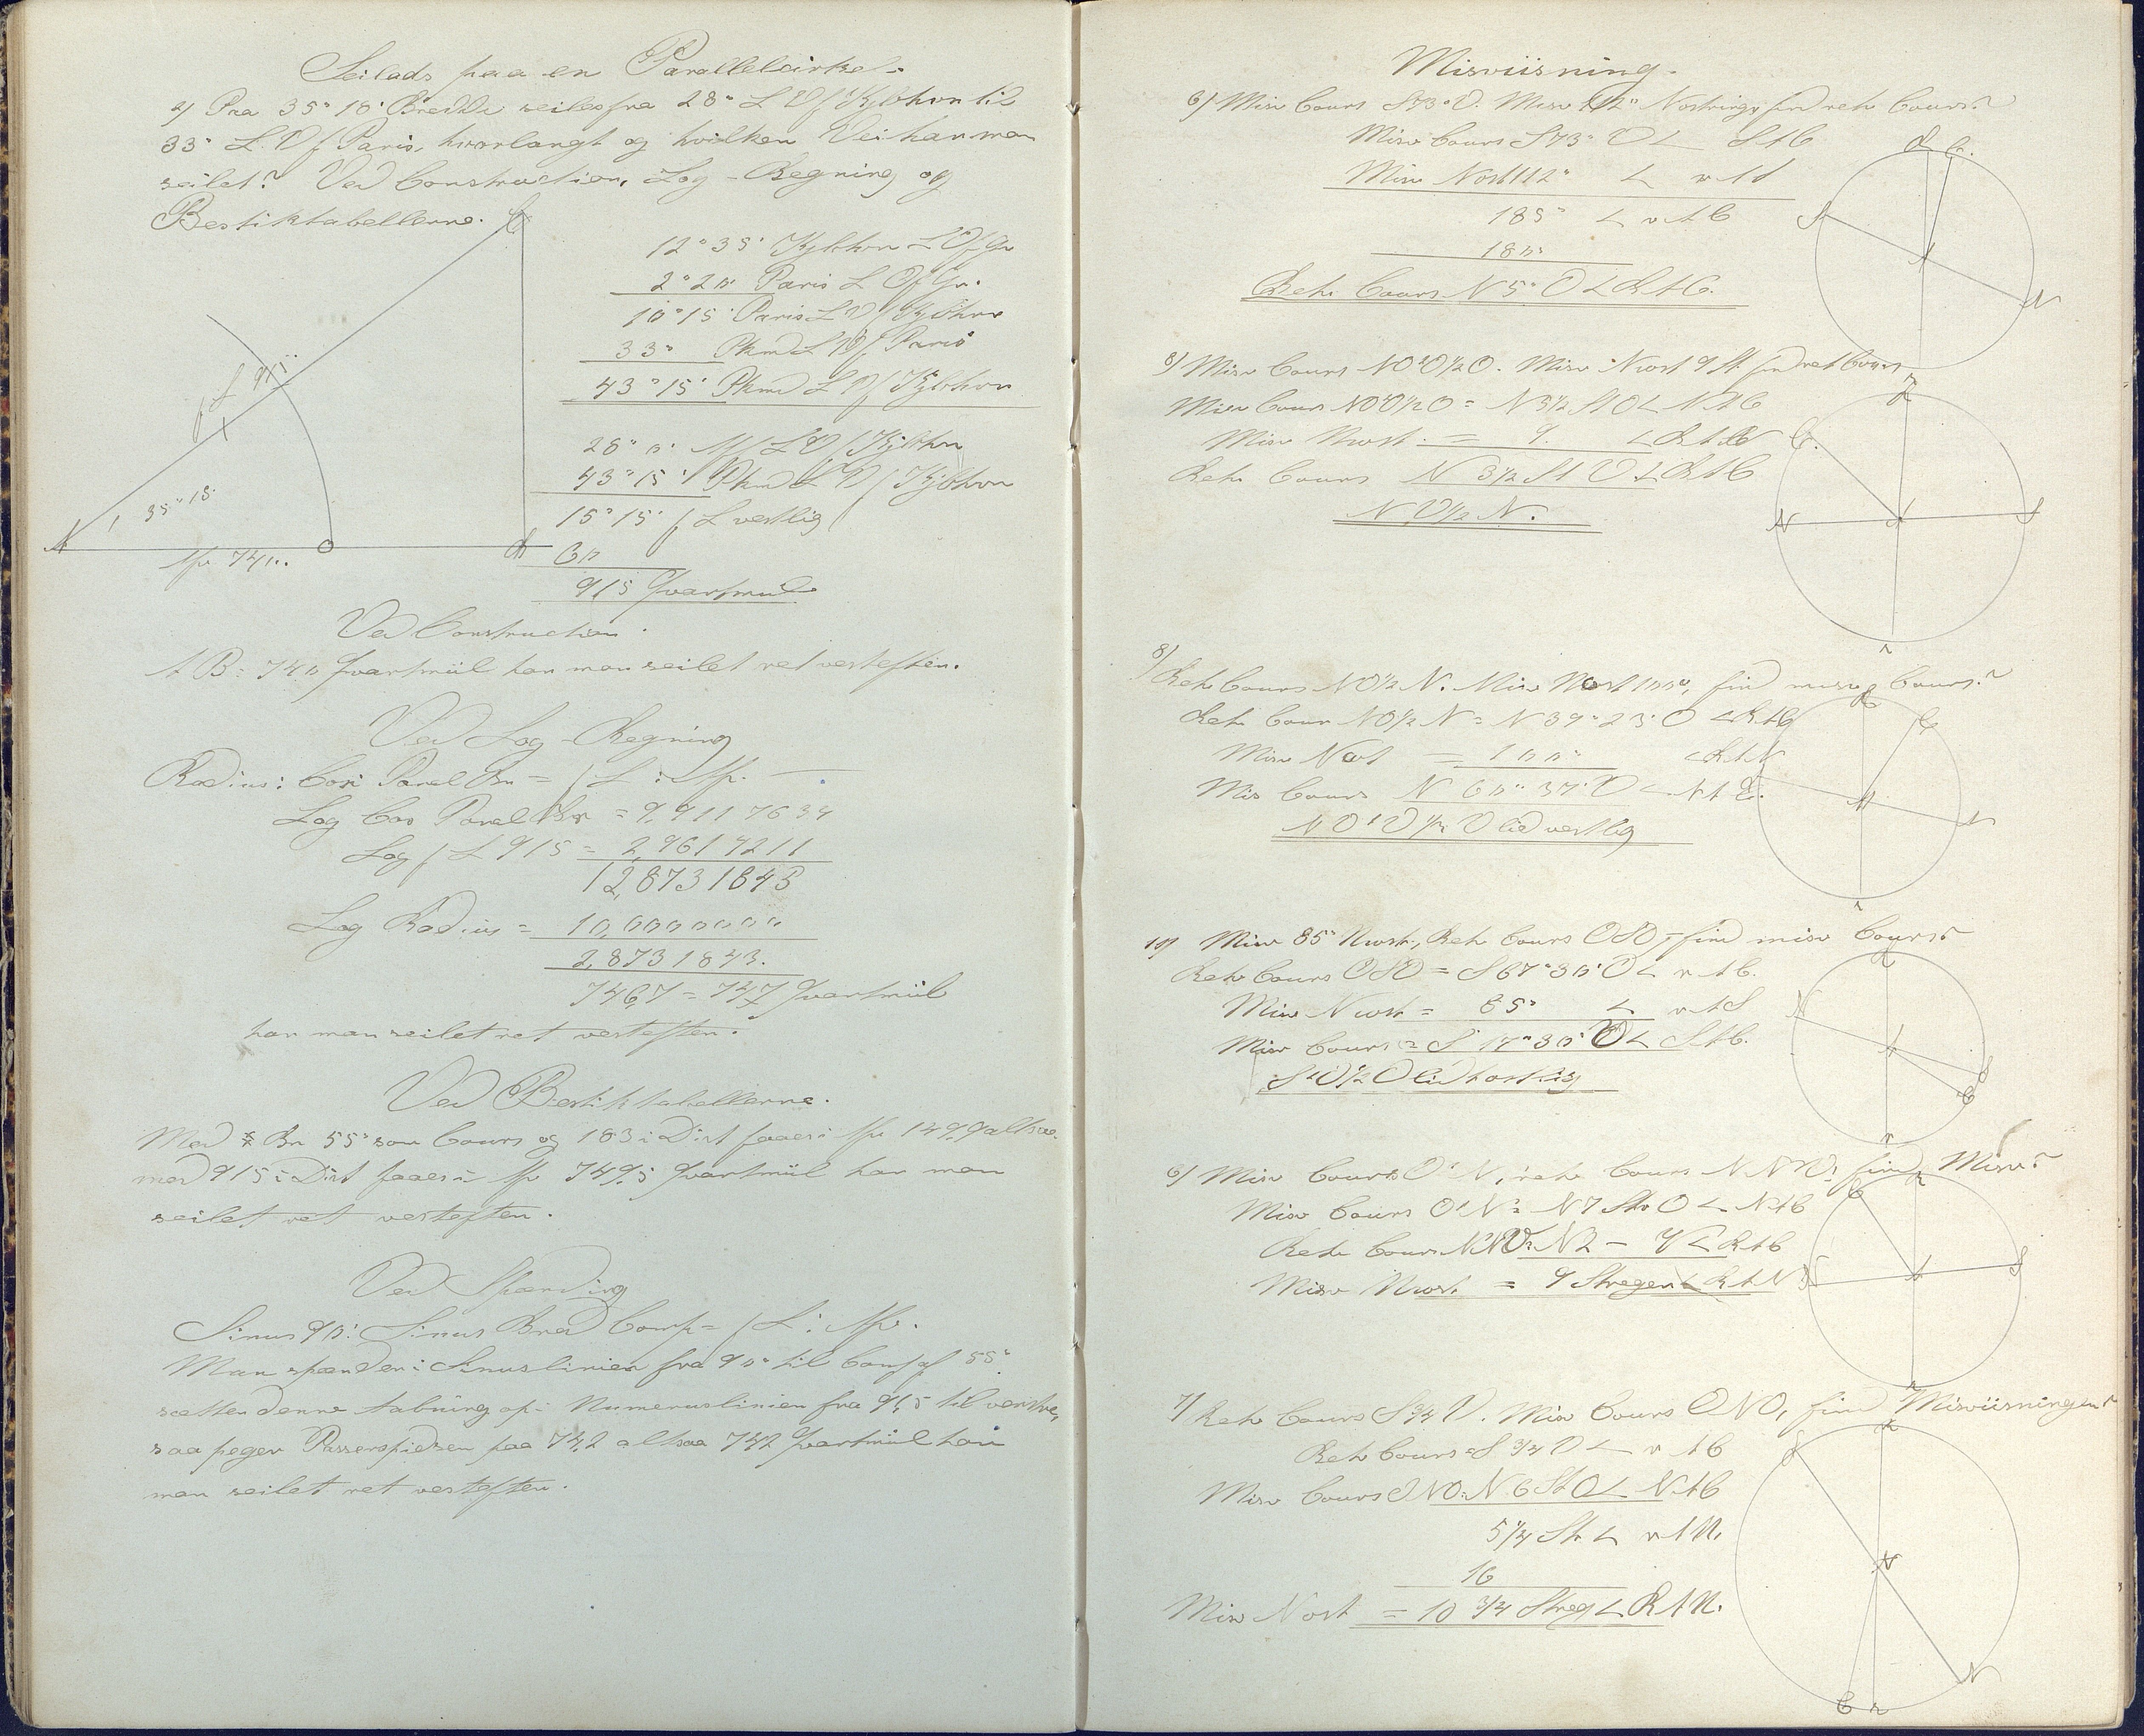 Seilads paa en Parallelcirkel.
2/ Paa 35° 18' Bredde seiles fra 28° L V f Kjöbhvn til
33° L. V f Paris, hvorlangt og hvilken Vei har man
seilet? Ved Construction, Log-Regning og
Bestiktabellerne.
C
12° 35' Kjöbhvn L O f Gr
2° 20' Paris L O f Gr.
10° 15' Paris L V f Kjöbhvn
33° Pkmd L V f Paris
43° 15' Pkmd L V f Kjöbhvn
28° 0' L V f Kjöbhvn
43° 15' Pkmd L V f Kjöbhvn
15° 15' f L vestlig
60
915 Qvartmiil
f L 915
35° 18'
A
B
Afv 740.
Ved Construction.
A B = 740 Qvartmiil har man seilet ret vesteften.
Ved Log-Regning
Radius : Cos Paral Br = f L : Afv.
Log Cos Paral Br = 9,9117634
Log f L 915 = 2,9614211
12,8731845
Log Radius = 10,0000000
2,8731843.
746,7 = 747 Qvartmiil
har man seilet ret vesteften.
Ved Bestiktabellerne.
Med Br 35° som Cours og 183 i Dist faaes i Afv 149,9 altsaa
med 915 i Dist faaes i Afv 749,5 Qvartmiil har man
seilet ret vesteften.
Ved Spænding
Sinus 90° : Sinus Bred Comp = f L : Afv.
Man spænder i Sinuslinien fra 90° til Comp af 55°
sætter denne Aabning op i Numeruslinien fra 9,15 til venstre,
saa peger Passerspidsen paa 742 altsaa 742 Qvartmiil har
man seilet ret vesteften.
Misviisning.
6/ Misv Cours S 73° V. Misv 112° Nostring, find retv Cours?
Misv Cours S 73° V < S A C
Misv Nost 112° < r A S
185° < r A C
180°
Retv Cours N 5° O < R A C.
8/ Misv Cours NO°O½O. Misv Nvest 9 St find ret Cours
Misv Cours = N 3½ St O < N A C
Misv Nvest. = 9. < R A N
Retv Cours N 3½ St V < R A C
N V ½ N.
8/ Retv Cours NO½N. Misv Nost 100°, find misv Cours?
Retv Cour NO½N = N 39° 23' O < R A C
Misv Nost = 100° < R A N
Mis Cours N 60° 37' V < N A C.
lid vestlig
10/ Misv 85° Nvest, Retv Cours OSO, find misv Cours?
Retv Cours OSO = S 67° 30' O < r A C.
Misv Nvest = 85° < r A S
Misv Cours = S 17° 30' V < S A C.
lid
6/ Misv Cours O'N, retv Cours NNV: find Misv?
Misv Cours O'N = N 7 Str O < N A C
Retv Cours NNV = N 2 - V < R A C
Misv Nvest. = 9 Streger < R A N
7/ Retv Cours S ¾ V. Misv Cours ONO, find Misviisningen?
Retv Cours = S ¾ V < r A C
Misv Cours ONO = N 6 St O < N A C
5¼ Str < r A N.
16
Misv Nost = 10 ¾ Streg < R A N.